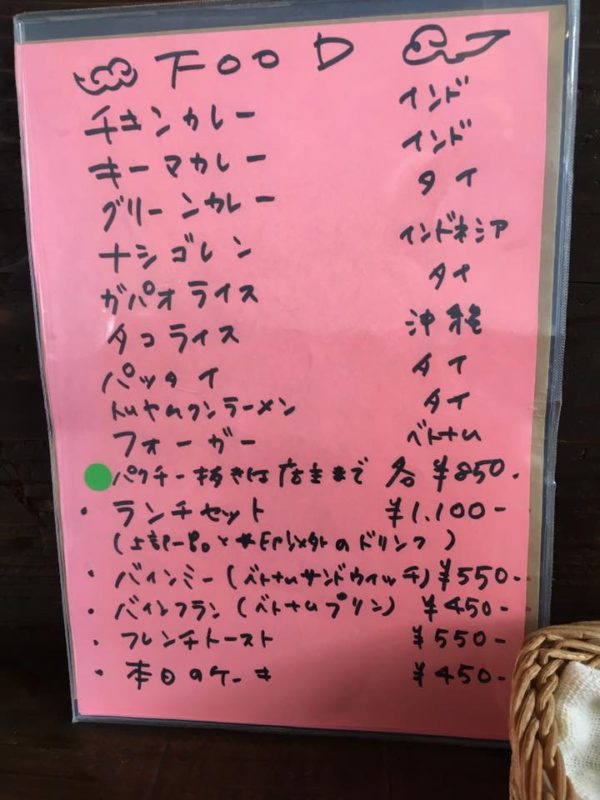 FOOD
チキンカレー インド
キーマカレー インド
グリーンカレー タイ
ナシゴレン インドネシア
ガパオライス タイ
タコライス 沖縄
パッタイ タイ
トムヤムクンラーメン タイ
フォーガー ベトナム
パクチー抜きは店主まで 各 ¥850-
・ランチセット ¥1,100-
(上部一品と*印以外のドリンク)
・バインミー(ベトナムサンドウィッチ) ¥550-
・バインフラン(ベトナムプリン) ¥450-
・フレンチトースト ¥550-
・本日のケーキ ¥450-